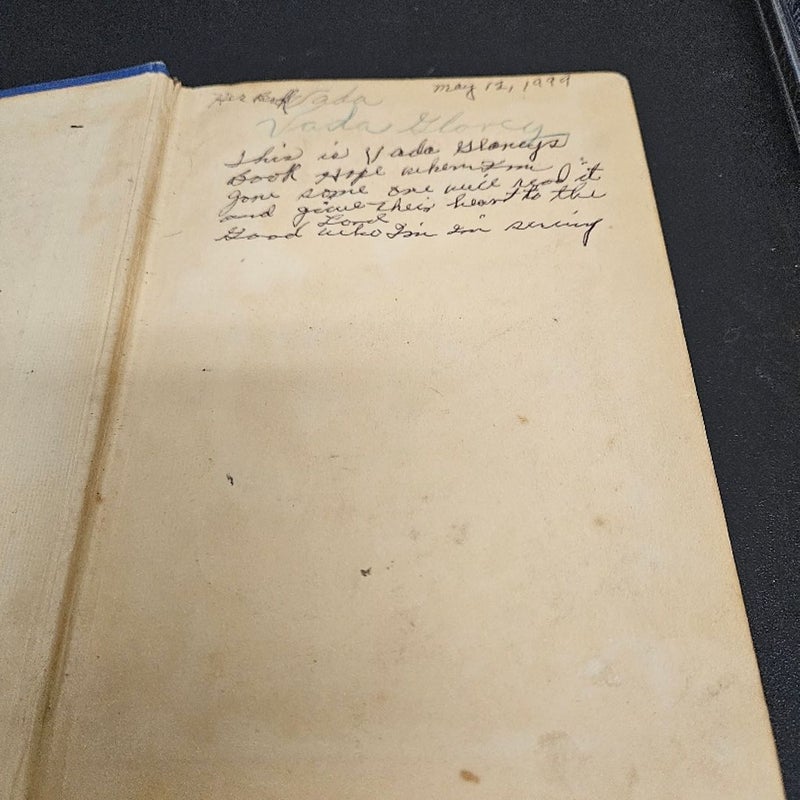 Her Book Vada May 12, 1999
Vada Glorcy
This is Vada Glorcys
Book Hope when I'm
gone some one will read it
and give their heart to the
Lord
Good who I'm I'm serving